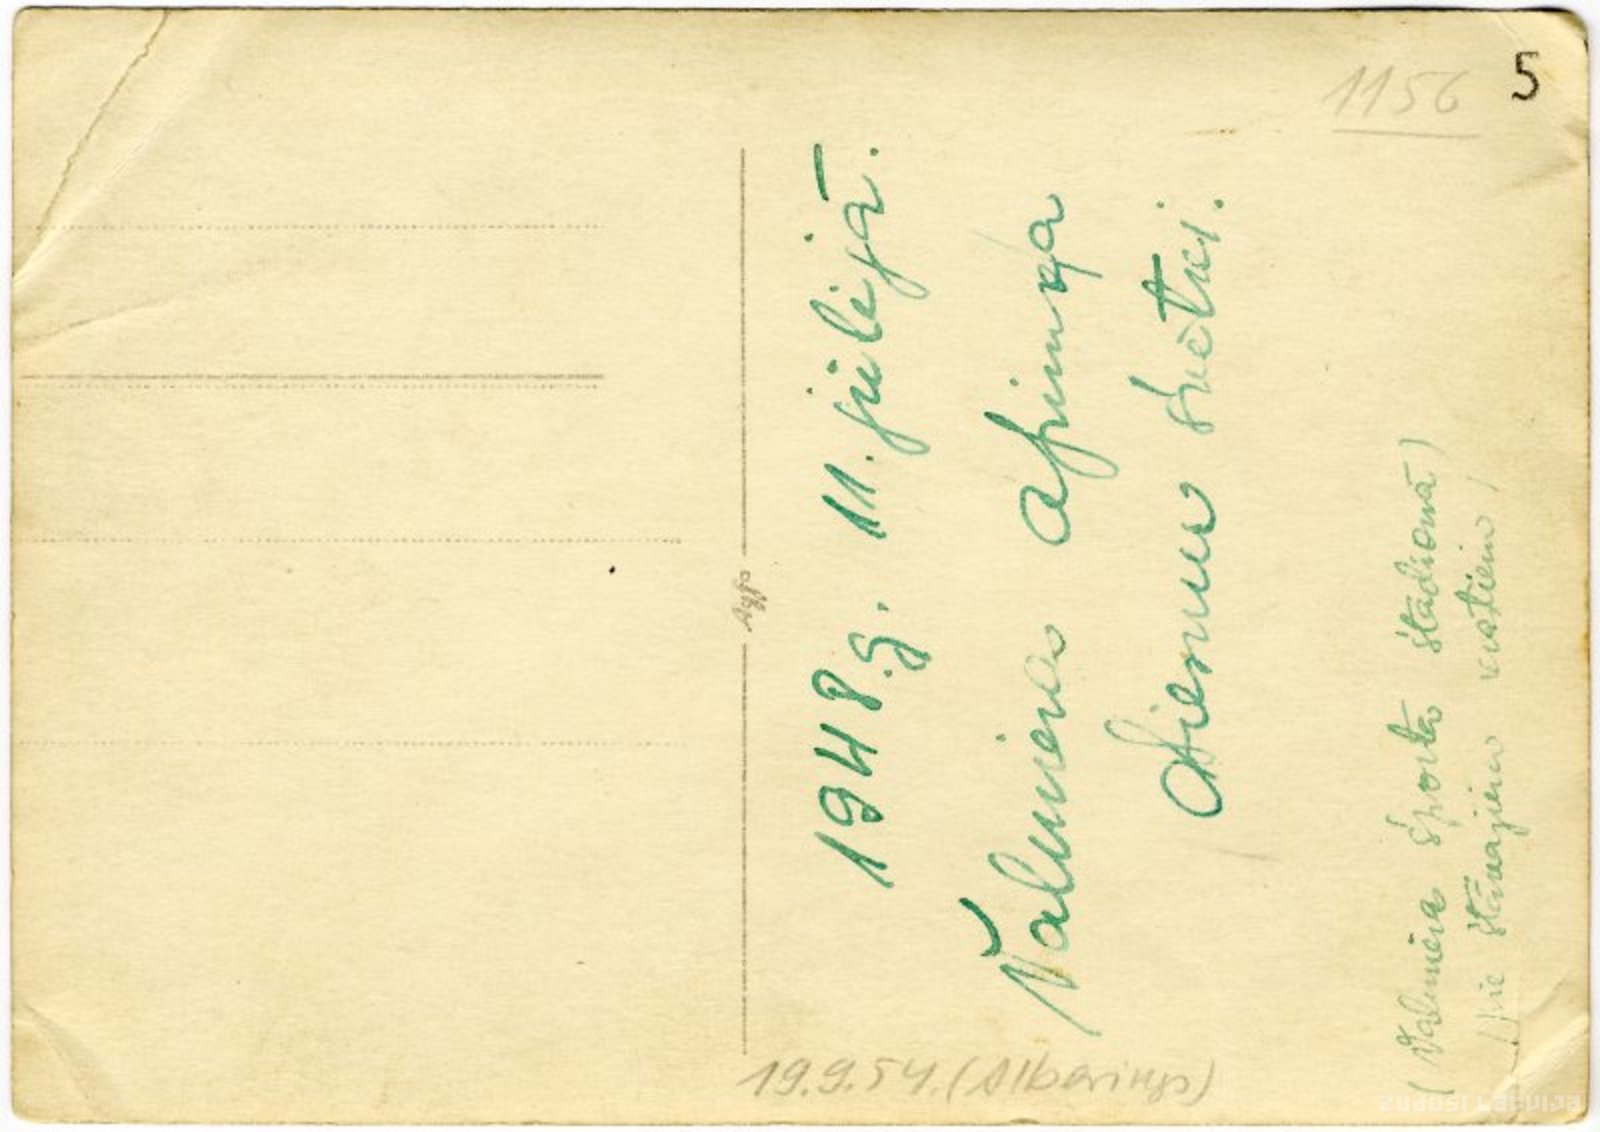 1156
5
1948.g. 11. jūlijā.
Valmieras apriņķa
dziesmu svētki.
(Valmiera sporta stadionā)
pie stāvajiem krastiem,
19.9.54. (Albariņš)
Agfa
ZUDUSI LATVIJA